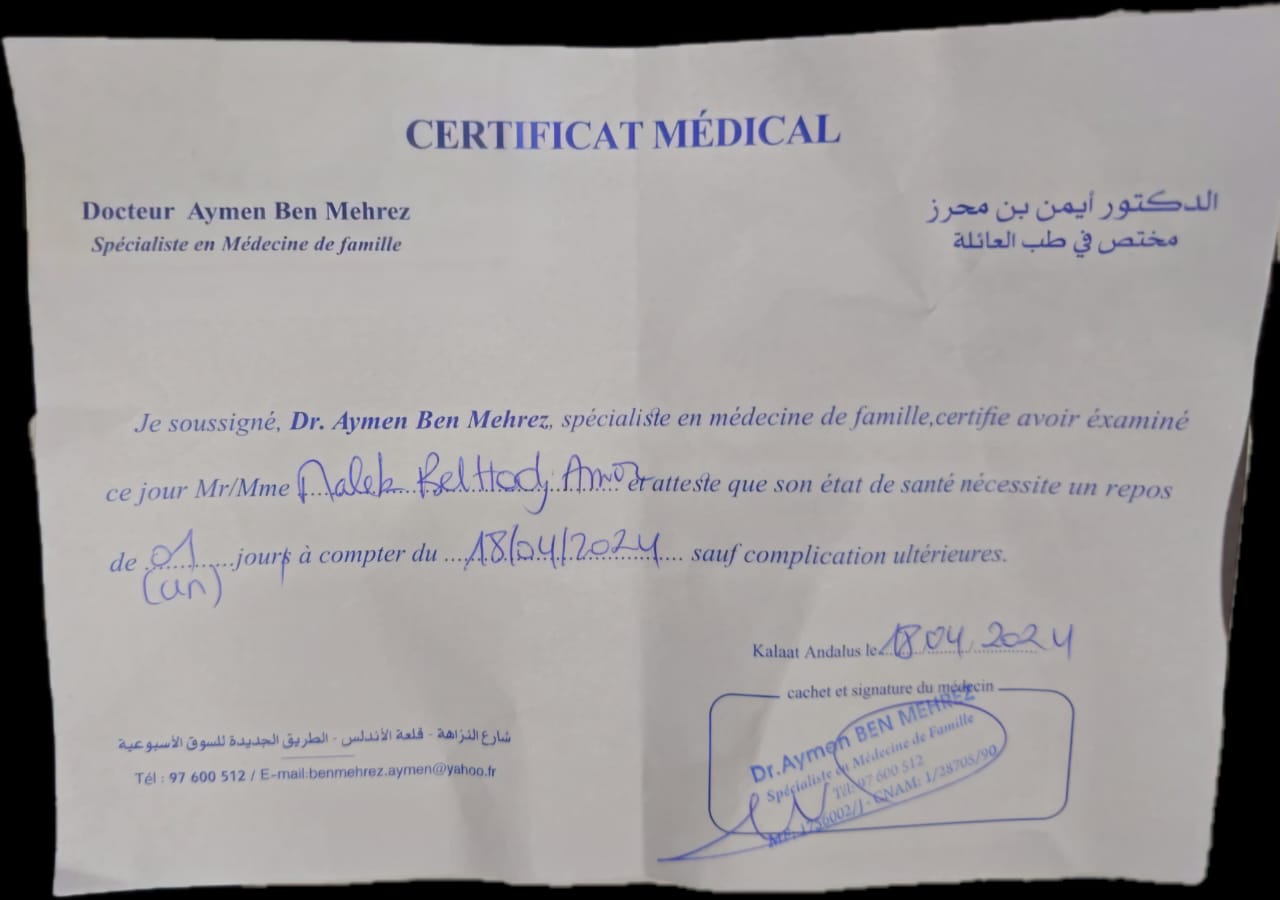 CERTIFICAT MÉDICAL
Docteur Aymen Ben Mehrez
Spécialiste en Médecine de famille
الدكتور أيمن بن محرز
مختص في طب العائلة
Je soussigné, Dr. Aymen Ben Mehrez, spécialiste en médecine de famille,certifie avoir éxaminé
ce jour Mr/Mme Malek BelHadj Amor et atteste que son état de santé nécessite un repos
de 01 jours à compter du 18/04/2024 sauf complication ultérieures.
(un)
Kalaat Andalus le 18.04.2024
cachet et signature du médecin
Dr.Aymen BEN MEHREZ
Spécialiste en Médecine de Famille
Tél: 97 600 512
CNAM: 1/28705/90
شارع النزاهة - قلعة الأندلس - الطريق الجديدة للسوق الأسبوعية
Tél : 97 600 512 / E-mail:benmehrez.aymen@yahoo.fr